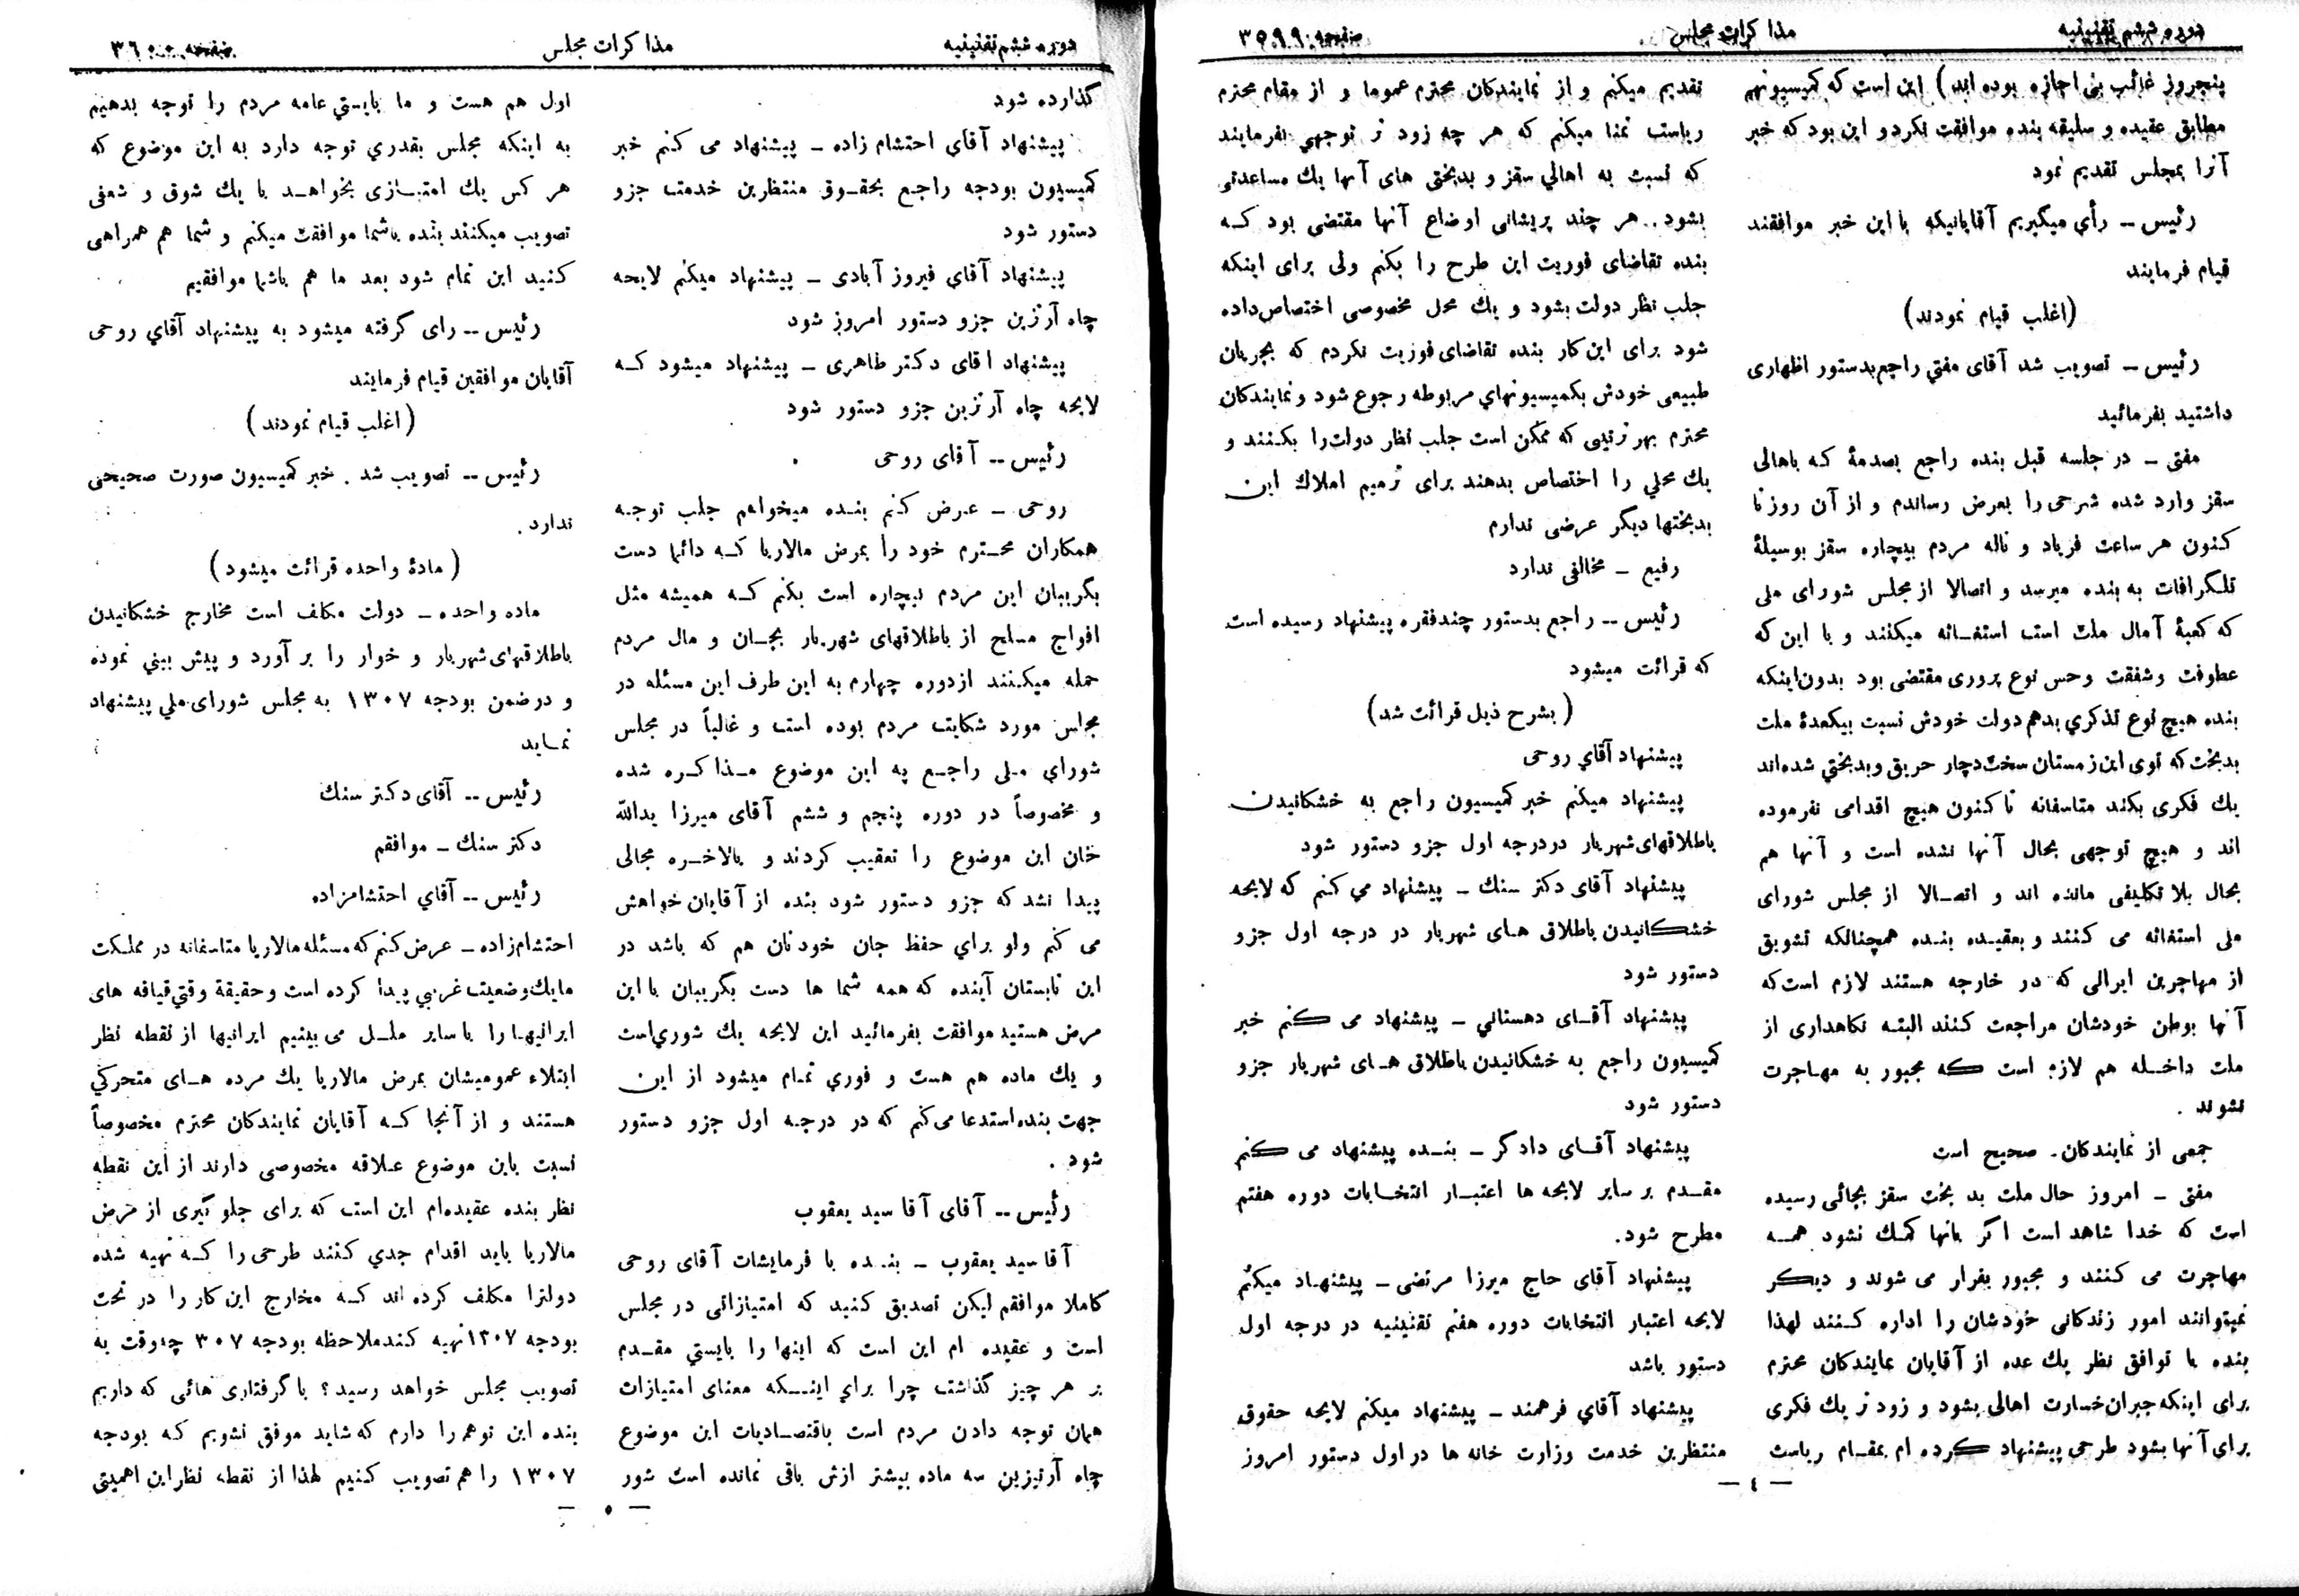 دوره ششم تقنینیه
مذاکرات مجلس
صفحه ۳۵۹۹
پنجروز غائب بی اجازه بوده اند) این است که کمیسیونهم
مطابق عقیده و سلیقه بنده موافقت نکرد و این بود که خبر
آنرا بمجلس تقدیم نمود
رئیس ــ رأی میگیریم آقایانیکه با این خبر موافقند
قیام فرمایند
(اغلب قیام نمودند)
رئیس ــ تصویب شد آقای مفتي راجع بدستور اظهاری
داشتید بفرمائید
مفتی ــ در جلسه قبل بنده راجع بصدمهٔ که باهالی
سقز وارد شده شرحی را بعرض رساندم و از آن روز تا
کنون هر ساعت فریاد و ناله مردم بیچاره سقز بوسیلهٔ
تلگرافات به بنده میرسد و اتصالا از مجلس شورای ملی
که کعبهٔ آمال ملت است استغـاثه میکنند و با این که
عطوفت و شفقت و حس نوع پروری مقتضی بود بدون اینکه
بنده هیچ نوع تذکري بدهم دولت خودش نسبت بیکعدهٔ ملت
بدبخت که توی این زمستان سخت دچار حریق و بدبختي شده‌اند
یك فکری بکند متاسفانه تا کنون هیچ اقدامی نفرموده
اند و هیچ توجهی بحال آنها نشده است و آنها هم
بحال بلا تکلیفی مانده اند و اتصـالا از مجلس شورای
ملی استغاثه می کنند و بعقیـده بنـده همچنانکه تشویق
از مهاجرین ایرانی که در خارجه هستند لازم است که
آنها بوطن خودشان مراجعت کنند البته نگاهداری از
ملت داخـله هم لازم است که مجبور به مهـاجرت
نشوند .
جمعی از نمایندکان ـ صحیح است
مفتی ــ امروز حال ملت بد بخت سقز بجائی رسیده
است که خدا شاهد است اگر بانها کمك نشود همـه
مهاجرت می کنند و مجبور بفرار می شوند و دیگر
نمیتوانند امور زندکانی خودشان را اداره کـنند لهذا
بنده با توافق نظر یك عده از آقایان نمایندکان محترم
برای اینکه جبران خسارت اهالی بشود و زود تر یك فکری
برای آنها بشود طرحی پیشنهاد کرده ام بمقـام ریاست
تقدیم میکنم و از نمایندکان محترم عموما و از مقام محترم
ریاست تمنا میکنم که هر چه زود تر توجهي بفرمایند
که نسبت به اهالي سقز و بدبختی های آنها یك مساعدتی
بشود . هر چند پریشانی اوضاع آنها مقتضی بود کـه
بنده تقاضای فوریت این طرح را بکنم ولی برای اینکه
جلب نظر دولت بشود و یك محل مخصوصی اختصاص داده
شود برای این کار بنده تقاضای فوریت نکردم که بجریان
طبیعی خودش بکمیسیونهاي مربوطه رجوع شود و نمایندکان
محترم بهر ترتیبی که ممکن است جلب نظر دولت را بکـنند و
یك محلي را اختصاص بدهند برای ترمیم املاك این
بدبختها دیگر عرضی ندارم
رفیع ــ مخالفی ندارد
رئیس ــ راجع بدستور چند فقره پیشنهاد رسیده است
که قرائت میشود
(بشرح ذیل قرائت شد)
پیشنهاد آقاي روحی
پیشنهاد میکنم خبر کمیسیون راجع به خشکانیدن
باطلاقهای شهریار در درجه اول جزو دستور شود
پیشنهاد آقای دکتر سنك ــ پیشنهاد می کنم که لایحه
خشکانیدن باطلاق هـای شهریار در درجه اول جزو
دستور شود
پیشنهاد آقـای دهستاني ــ پیشنهاد می کنم خبر
کمیسیون راجع به خشکانیدن باطلاق هـای شهریار جزو
دستور شود
پیشنهاد آقـای دادگر ــ بنـده پیشنهاد می کنم
مقـدم بر سایر لایحه ها اعتبـار انتخـابات دوره هفتم
مطرح شود.
پیشنهاد آقای حاج میرزا مرتضی ــ پیشنهـاد میکنم
لایحه اعتبار انتخابات دوره هفتم تقنینیه در درجه اول
دستور باشد
پیشنهاد آقاي فرهمند ــ پیشنهاد میکنم لایحه حقوق
منتظرین خدمت وزارت خانه ها در اول دستور امروز
— ٤ —
دوره ششم تقنینیه
مذاکرات مجلس
صفحه ۳٦۰۰
گذارده شود
پیشنهاد آقاي احتشام زاده ــ پیشنهاد می کنم خبر
کمیسیون بودجه راجـع بحقـوق منتظرین خدمت جزو
دستور شود
پیشنهاد آقای فیروز آبادی ــ پیشنهاد میکنم لایحه
چاه آرتزین جزو دستور امروز شود
پیشنهاد اقای دکتر طاهری ــ پیشنهاد میشود کـه
لایحه چاه آرتزین جزو دستور شود
رئیس ــ آقای روحی
روحی ــ عرض کـنم بنـده میخواهم جلب توجـه
همکاران محـترم خود را بمرض مالاریا کـه دائما دست
بگریبان این مردم بیچاره است بکنم کـه همیشه مثل
افواج مسلح از باطلاقهای شهریار بجـان و مال مردم
حمله میکـنند از دوره چهارم به این طرف این مسئله در
مجلس مورد شکایت مردم بوده است و غالباً در مجلس
شورای ملی راجـع به این موضوع مـذاکـره شده
و مخصوصاً در دوره پنجم و ششم آقای میرزا یدالله
خان این موضوع را تعقیب کردند و بالاخـره مجالی
پیدا نشد که جزو دستور شود بنده از آقایان خواهش
می کنم ولو براي حفظ جان خودتان هم که باشد در
این تابستان آینده که همه شما ها دست بگریبان با این
مرض هستید موافقت بفرمائید این لایحه یك شوري است
و یك ماده هم هست و فوري تمـام میشود از این
جهت بنده استدعا می‌کنم که در درجـه اول جزو دستور
شود .
رئیس ــ آقای آقا سید یعقوب
آقا سید یعقوب ــ بنـده با فرمایشات آقای روحی
کاملا موافقم لیکن تصدیق کنید که امتیازاتی در مجلس
است و عقیده ام این است که اینها را بایستي مقـدم
بر هر چیز گذاشت چرا براي اینـکه معنای امتیازات
همان توجه دادن مردم است باقتصـادیات این موضوع
چاه آرتیزین سه ماده بیشتر ازش باقی نمانده است شور
اول هم هست و ما بایستي عامه مردم را توجه بدهیم
به اینکه مجلس بقدري توجه دارد به این موضوع که
هر کس یك امتیـازی بخواهـد با یك شوق و شعفی
تصویب میکنند بنده باشما موافقت میکنم و شما هم همراهی
کـنید این تمام شود بعد ما هم باشما موافقیم
رئیس ــ رای گرفته میشود به پیشنهاد آقاي روحی
آقایان موافقین قیام فرمایند
(اغلب قیام نمودند)
رئیس ــ تصویب شد . خبر کمیسیون صورت صحیحی
ندارد .
(مادهٔ واحده قرائت میشود)
ماده واحده ــ دولت مکلف است مخارج خشکانیدن
باطلاقهای شهریار و خوار را بر آورد و پیش بیني نموده
و در ضمن بودجه ۱۳۰۷ به مجلس شورای ملي پیشنهاد
نمـاید
رئیس ــ آقای دکـتر سنك
دکتر سنك ــ موافقم
رئیس ــ آقاي احتشامزاده
احتشام زاده ــ عرض کنم که مسئله مالاریا متاسفانه در مملکت
ما یك وضعیت غریبي پیدا کرده است و حقیقة وقتي قیافه های
ایرانیهـا را با سایر ملـل می بینیم ایرانیها از نقطه نظر
ابتلاء عمومیشان بمرض مالاریا یك مرده هـای متحرکي
هستند و از آنجا کـه آقایان نمایندکان محترم مخصوصاً
نسبت باین موضوع عـلاقه مخصوصی دارند از این نقطه
نظر بنده عقیده‌ام این است که برای جلو گیری از مرض
مالاریا باید اقدام جدي کـنند طرحی را کـه تهیه شده
دولترا مکلف کرده اند کـه مخارج این کار را در تحت
بودجه ۱۳۰۷ تهیه کند ملاحظه بودجه ۳۰۷ چه‌وقت به
تصویب مجلس خواهد رسید؟ با گرفتاری هائی که داریم
بنده این توهم را دارم که شاید موفق نشویم کـه بودجه
۱۳۰۷ را هم تصویب کـنیم لهذا از نقطه نظر این اهمیتی
— ٥ —